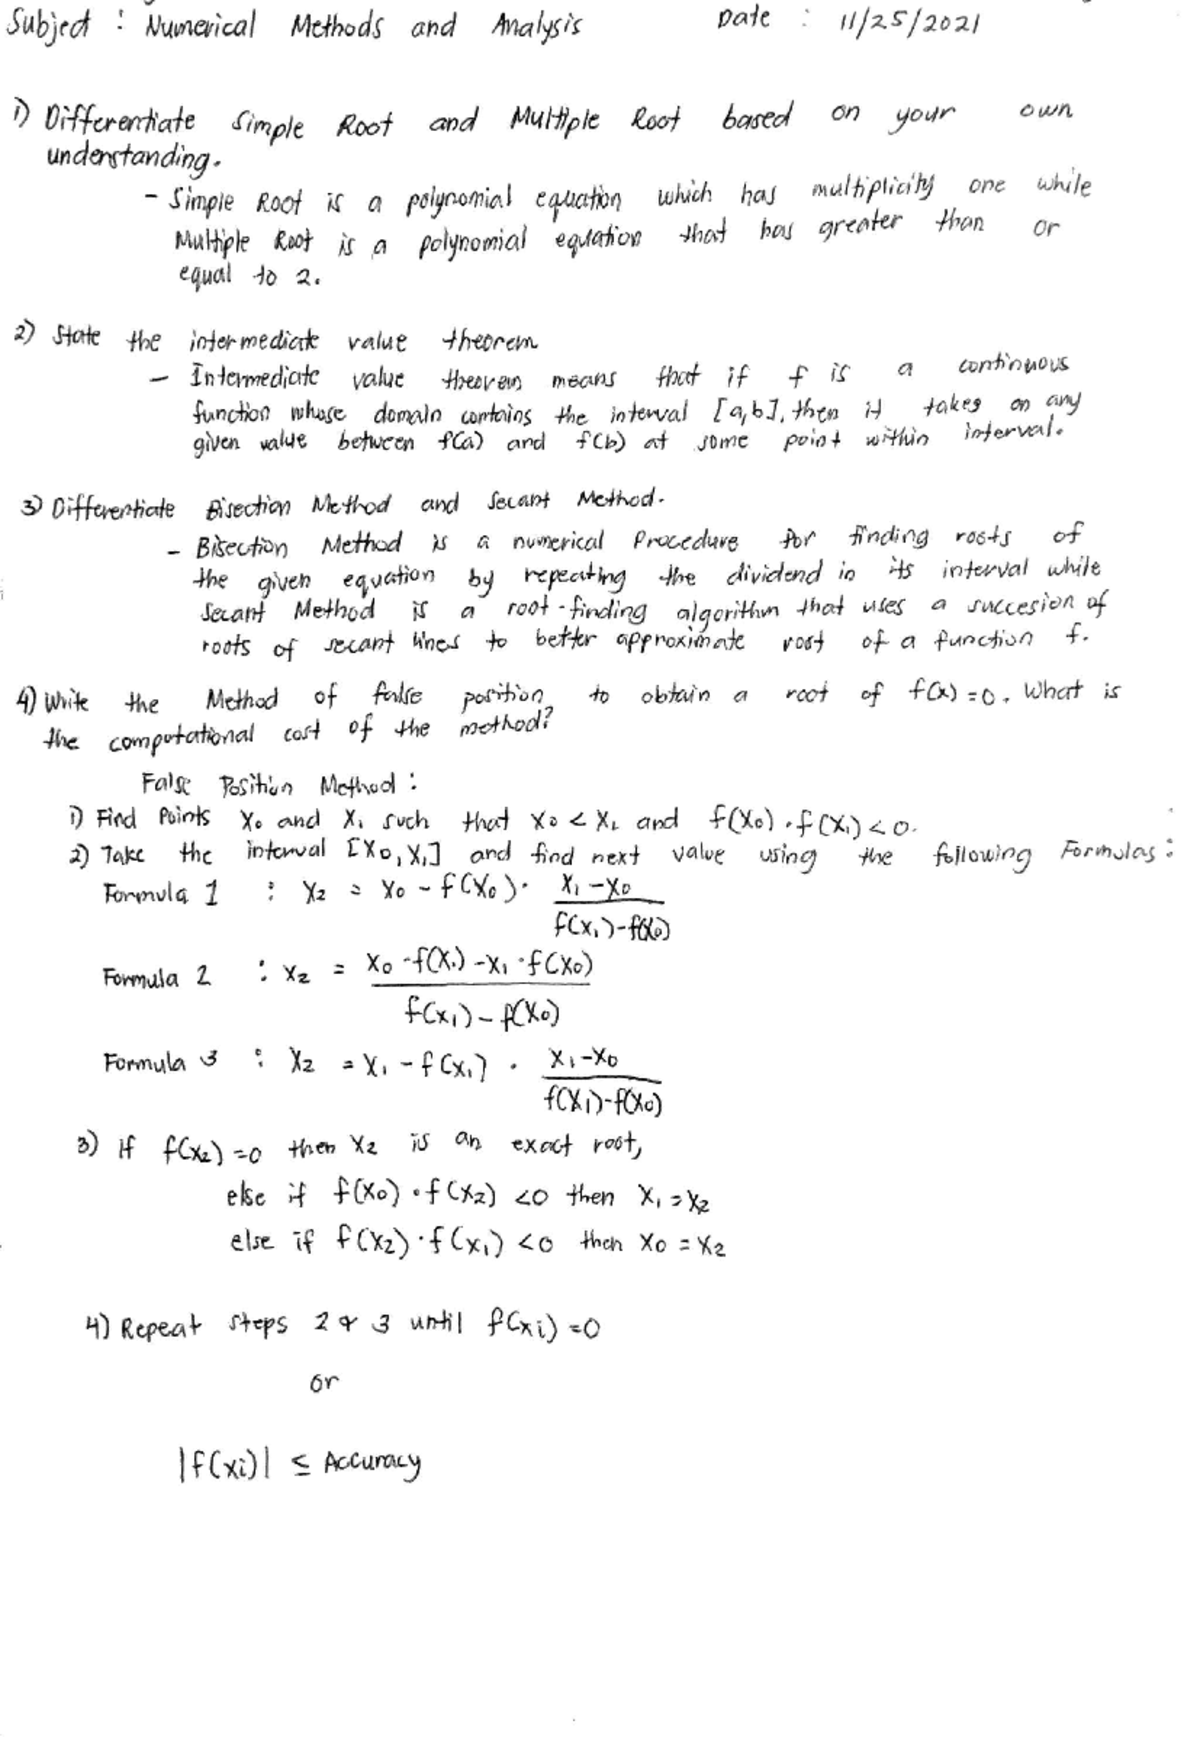 Subject : Numerical Methods and Analysis Date : 11/25/2021
1) Differentiate Simple Root and Multiple Root based on your own
understanding.
- Simple Root is a polynomial equation which has multiplicity one while
Multiple Root is a polynomial equation that has greater than or
equal to 2.
2) State the intermediate value theorem
- Intermediate value theorem means that if f is a continuous
function whose domain contains the interval [a,b], then it takes on any
given value between f(a) and f(b) at some point within interval.
3) Differentiate Bisection Method and Secant Method.
- Bisection Method is a numerical Procedure for finding roots of
the given equation by repeating the dividend in its interval while
Secant Method is a root-finding algorithm that uses a succesion of
roots of secant lines to better approximate root of a function f.
4) Write the Method of false position to obtain a root of f(x)=0. What is
the computational cost of the method?
False Position Method :
1) Find Points X₀ and X₁ such that X₀ < X₁ and f(X₀) · f(X₁) < 0.
2) Take the interval [X₀, X₁] and find next value using the following Formulas :
Formula 1 : X₂ = X₀ - f(X₀) · X₁-X₀
f(X₁)-f(X₀)
Formula 2 : X₂ = X₀ -f(X₁) -X₁ ·f(X₀)
f(X₁) - f(X₀)
Formula 3 : X₂ = X₁ - f(X₁) · X₁-X₀
f(X₁)-f(X₀)
3) If f(X₂) =0 then X₂ is an exact root,
else if f(X₀) · f(X₂) <0 then X₁ = X₂
else if f(X₂) · f(X₁) <0 then X₀ = X₂
4) Repeat steps 2 & 3 until f(xi) =0
or
|f(xi)| ≤ Accuracy